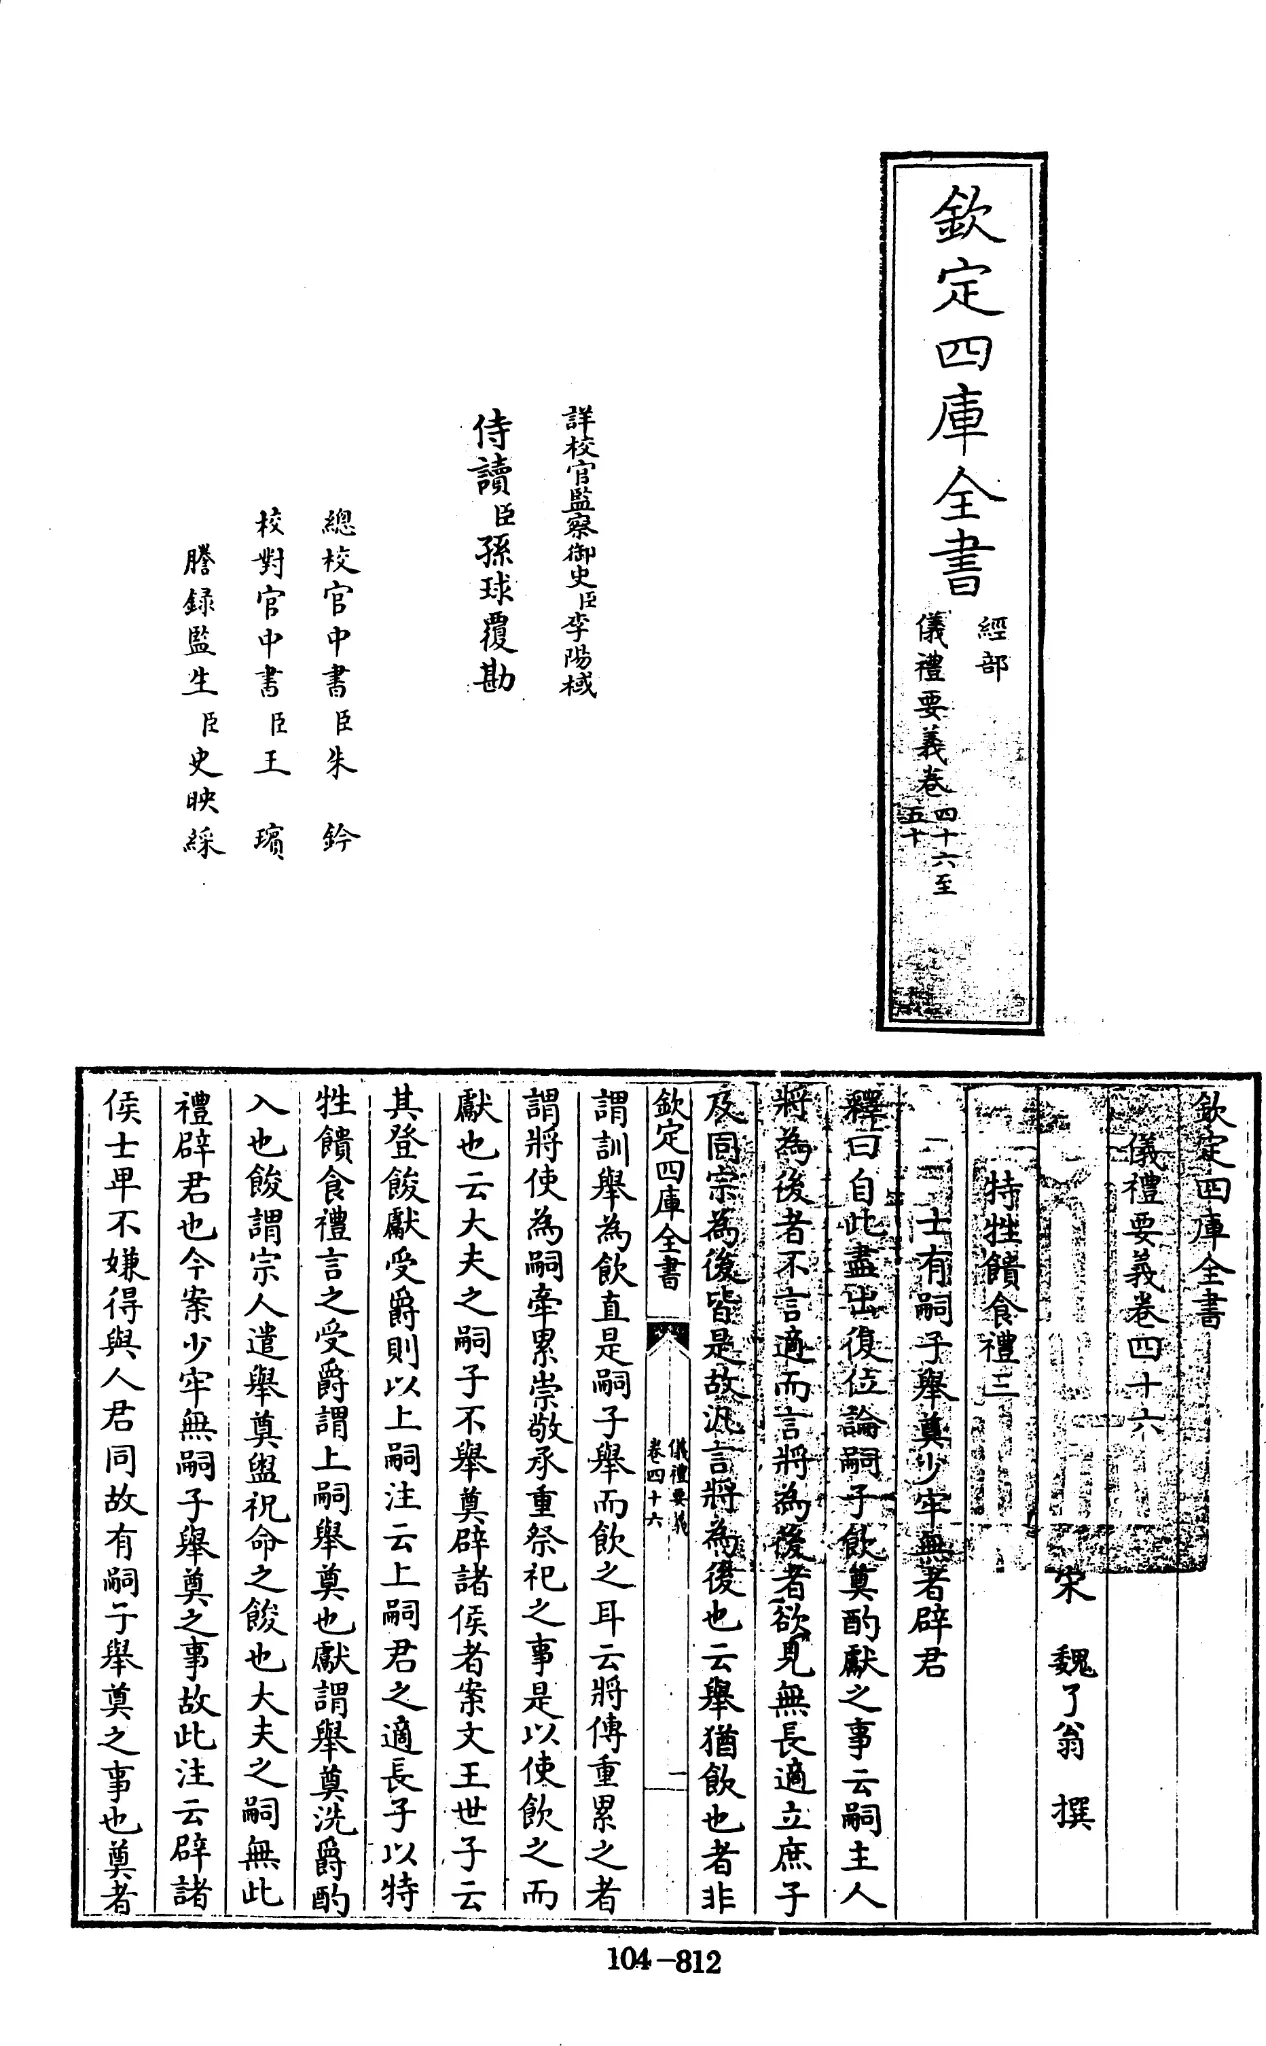 欽定四庫全書
經部
儀禮要義卷四十六至
五十
詳校官監察御史臣李陽棫
侍讀臣孫球覆勘
總校官中書臣朱鈐
校對官中書臣王璸
謄録監生臣史映綵
欽定四庫全書
儀禮要義卷四十六
宋 魏了翁 撰
特牲饋食禮三
一士有嗣子舉奠少牢無者辟君
釋曰自此盡出復位論嗣子飲奠酌獻之事云嗣主人
將為後者不言適而言將為後者欲見無長適立庶子
及同宗為後皆是故汎言將為後也云舉猶飲也者非
欽定四庫全書
儀禮要義
卷四十六
一
謂訓舉為飲直是嗣子舉而飲之耳云將傳重累之者
謂將使為嗣牽累崇敬承重祭祀之事是以使飲之而
獻也云大夫之嗣子不舉奠辟諸侯者案文王世子云
其登餕獻受爵則以上嗣注云上嗣君之適長子以特
牲饋食禮言之受爵謂上嗣舉奠也獻謂舉奠洗爵酌
入也餕謂宗人遣舉奠盥祝命之餕也大夫之嗣無此
禮辟君也今案少牢無嗣子舉奠之事故此注云辟諸
侯士卑不嫌得與人君同故有嗣子舉奠之事也奠者
104-812